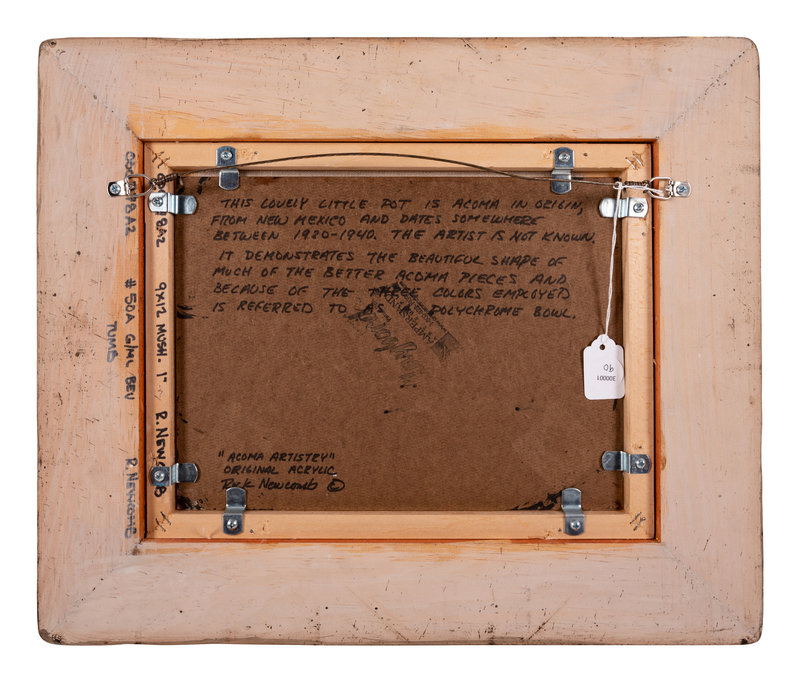 THIS LOVELY LITTLE POT IS ACOMA IN ORIGIN,
FROM NEW MEXICO AND DATES SOMEWHERE
BETWEEN 1920-1940. THE ARTIST IS NOT KNOWN.
IT DEMONSTRATES THE BEAUTIFUL SHAPE OF
MUCH OF THE BETTER ACOMA PIECES AND
BECAUSE OF THE THREE COLORS EMPLOYED
IS REFERRED TO AS A POLYCHROME BOWL.
"ACOMA ARTISTRY"
ORIGINAL ACRYLIC
Rick Newcomb ©
9X12 MUSH - 1" R. NEWCOMB
# 50A G/ML BEV R. NEWCOMB
TUMB
300001
90